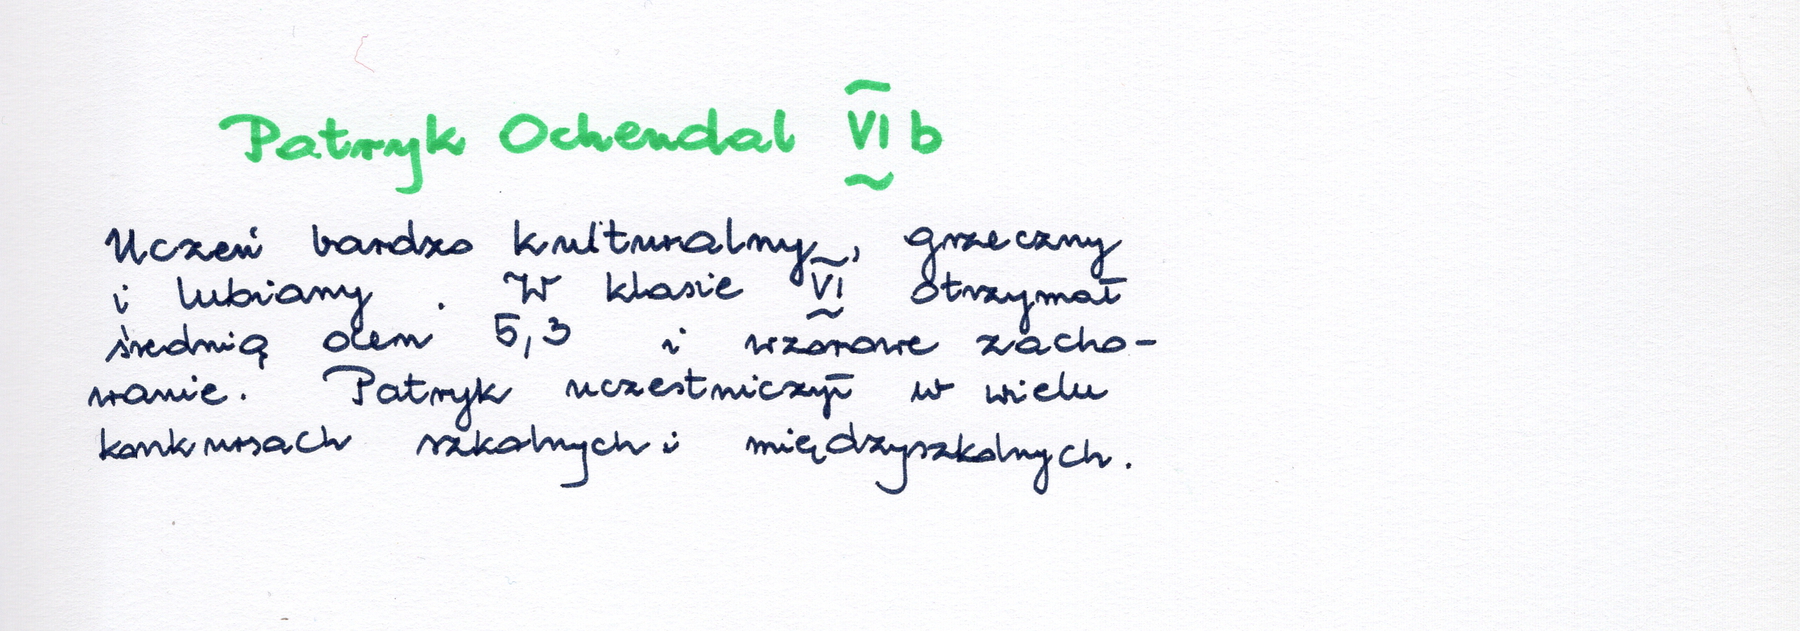 Patryk Ochendal VI b
Uczeń bardzo kulturalny, grzeczny
i lubiany. W klasie VI otrzymał
średnią ocen 5,3 i wzorowe zacho-
wanie. Patryk uczestniczył w wielu
konkursach szkolnych i międzyszkolnych.